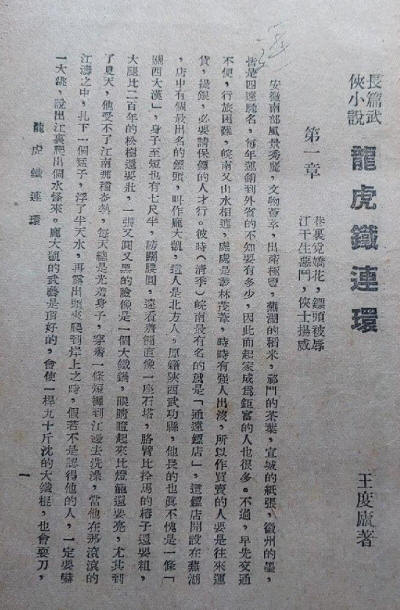 長篇武
俠小說
龍虎鐵連環
王度廬著
第一章
巷裏覓嬌花,鏢頭被辱
江干生惡鬥,俠士揚威
安徽南部風景秀麗,文物薈萃,出產極豐,蕪湖的稻米,祁門的茶葉,宣城的紙張,徽州的墨,
皆是四遠馳名,每年運銷到外省的不知要有多少,因此而起家成爲鉅富的人也很多。不過,早先交通
不便,行旅困難,皖南又山水相連,處處是叢林茂葦,時時有強人出沒,所以作買賣的人要是往來運
貨,提銀,必要請保鏢的人才行。彼時(清季)皖南最有名的就是「通遠鏢店」,這鏢店開設在蕪湖
,店中有個最出名的鏢頭,叫作龐大,這人是北方人,原籍陝西武功縣,他長的也眞不愧是一條「
關西大漢」,身子至短也有七尺半,膀闊腰圓,遠看簡直像一座石塔,胳臂比拴馬的樁子還要粗,
大腿比二百年的松樹還要壯,一張又圓又黑的臉龐是一個大鐵鍋,眼睛瞪起來比燈籠還要亮,尤其到
了夏天,他受不了江南那種奇熱,每天總是光着身子,穿着一條短褲到江邊去洗澡,當他在那滾滾的
江濤之中,扎下一個猛子,浮了半天水,再露出頭來爬到岸上之時,假若不是認得他的人,一定要嚇
一大跳,說出江裏爬出個水怪來。龐大的武藝是頂好的,會使一桿九十斤沈的大鐵棍,也會耍刀,
龍虎鐵連環
一